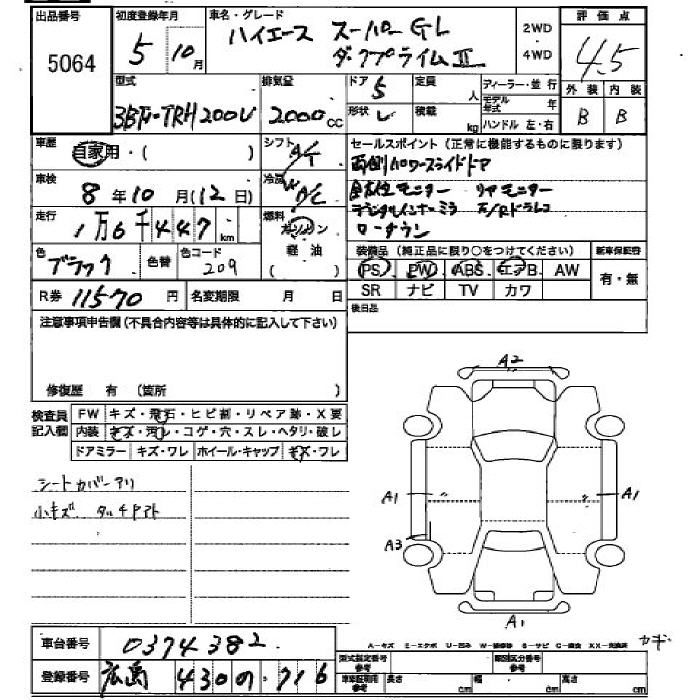 出品番号
5064
初度登録年月
5年10月
車名・グレード
ハイエース スーパーGL
ダークプライムⅡ
2WD
4WD
評価点
4.5
外装 内装
B B
型式
3BF-TRH200V
排気量
2000cc
ドア
5
形状
V
定員
人
積載
kg
ディーラー・並行
モデル年式 年
ハンドル 左・右
車歴
自家用・( )
シフト
A/T
車検
8年10月(12日)
冷房
A/C
走行
1万6千447km
燃料
ガソリン
軽油
( )
色
ブラック
色替
色コード
209
R券 11570円
名変期限 月 日
セールスポイント(正常に機能するものに限ります)
両側パワースライドドア
リヤモニター
デジタルインナーミラー F/Rドラレコ
装備品(純正品に限り○をつけてください)
PS PW ABS エアB AW
SR ナビ TV カワ
新車保証書
有・無
後日品
注意事項申告欄(不具合内容等は具体的に記入して下さい)
修復歴 有 (箇所 )
検査員記入欄
FW キズ・飛石・ヒビ割・リペア跡・X要
内装 キズ・汚レ・コゲ・穴・スレ・ヘタリ・破レ
ドアミラー キズ・ワレ ホイール・キャップ キズ・フレ
シートカバーアリ
小キズ タッチアト
A2
A1
A1
A3
A1
A-キズ E-エクボ U-凹み W-補修跡 S-サビ C-腐食 XX-交換済
カギ
車台番号 0374382
登録番号 広島 430 の 716
型式指定番号 参考
類別区分番号 参考
車検証記載 参考
長さ cm
幅 cm
高さ cm